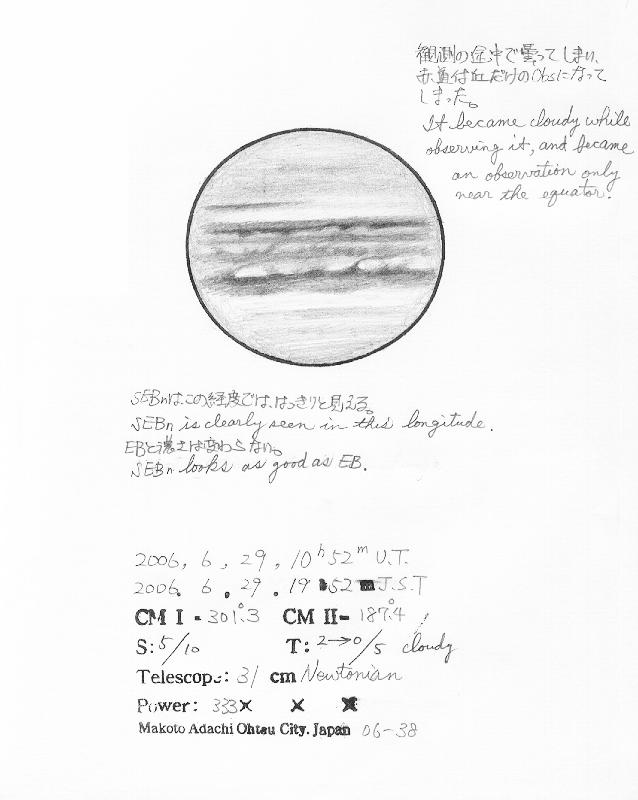 観測の途中で曇ってしまい、
赤道付近だけのObsになって
しまった。
It became cloudy while
observing it, and became
an observation only
near the equator.
SEBnは、この経度では、はっきりと見える。
SEBn is clearly seen in this longitude.
EBと濃さは変わらない。
SEBn looks as good as EB.
2006, 6, 29, 10h 52m U.T.
2006. 6. 29. 19 52 J.S.T
CM I - 301°.3 CM II- 187°.4
S: 5/10 T: 2→0/5 cloudy
Telescope: 31 cm Newtonian
Power: 333× × ×
Makoto Adachi Ohtsu City. Japan 06-38